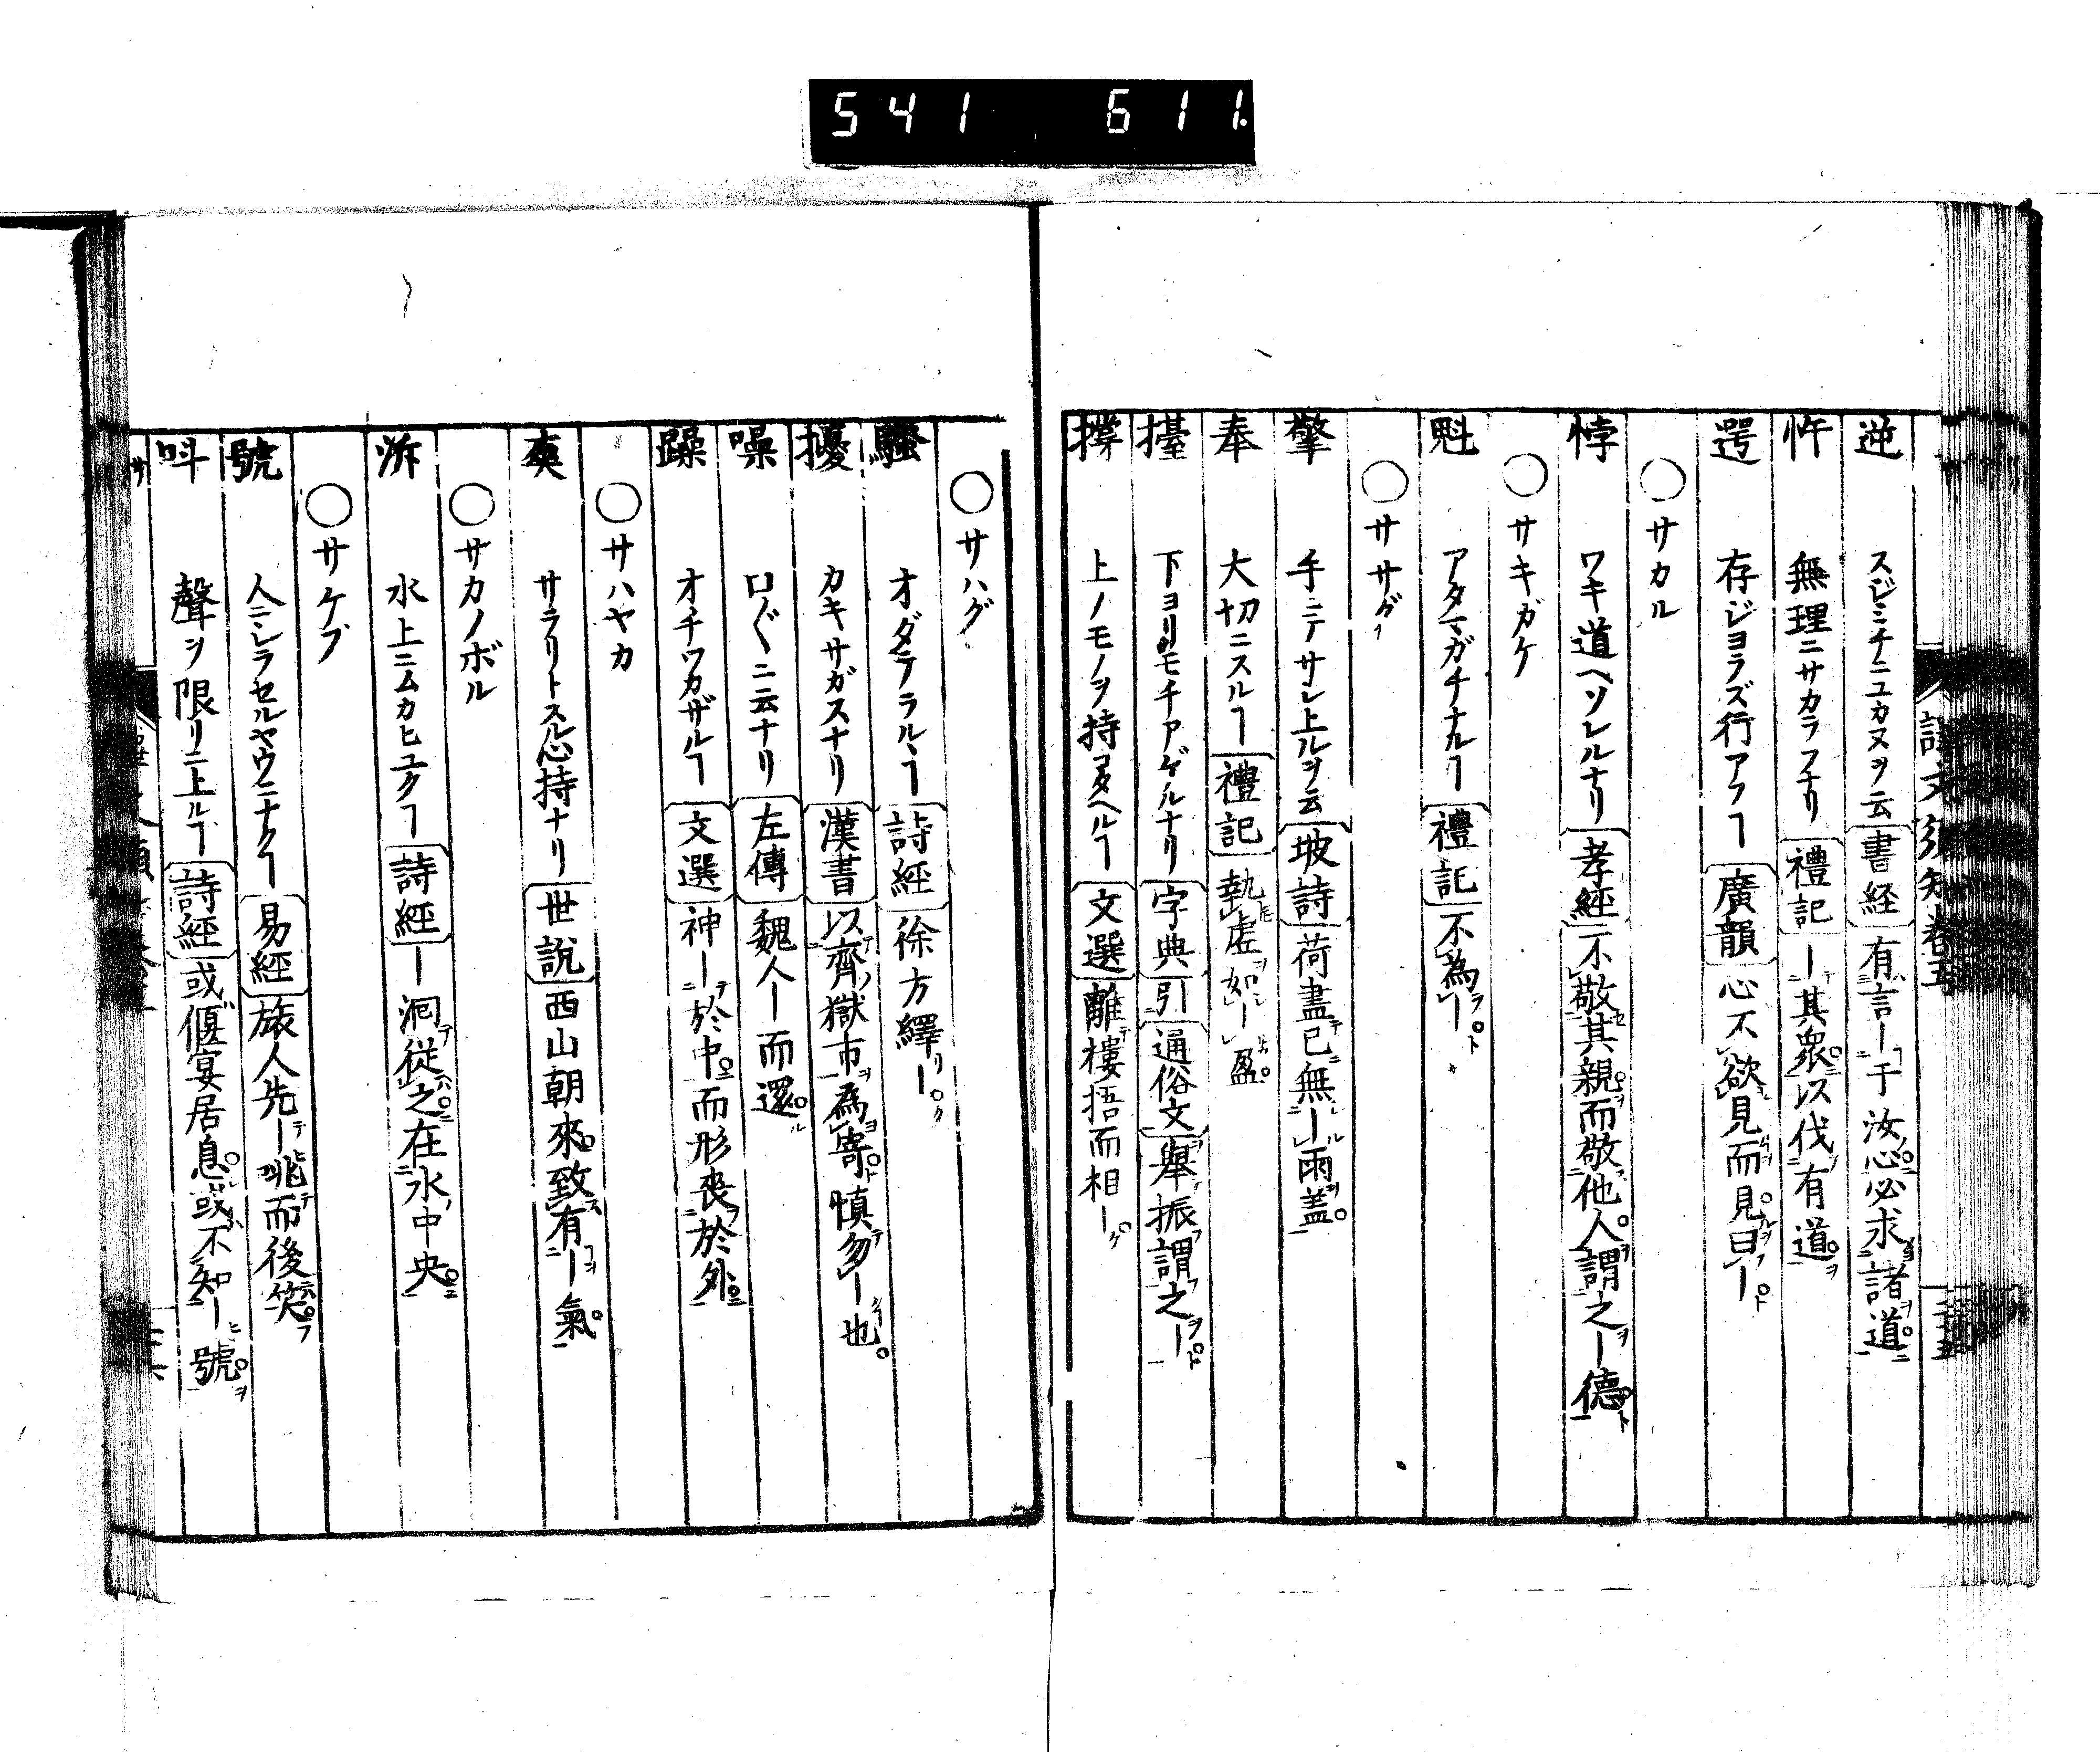 541 611
逆 スジミチニユカヌヲ云 書経 有言ー于汝心必求諸道
忤 無理ニサカラフナリ 禮記 ー其衆以伐有道
遌 存ジヨラズ行アフヿ 廣韻 心不欲見而見曰ー
○サカル
悖 ワキ道ヘソレルナリ 孝經 不敬其親而敬他人謂之ー德
○サキガケ
魁 アタマガチナルヿ 禮記 不為ー
○ササグ
擎 手ニテサシ上ルヲ云 坡詩 荷盡已無ー雨盖
奉 大切ニスルヿ 禮記 執虛如ー盈
擡 下ヨリモチアゲルナリ 字典引通俗文 舉振謂之ー
撐 上ノモノヲ持コタヘルヿ 文選 離樓捂而相ー
○サハグ
騷 オダテラルヽヿ 詩経 徐方繹ー
擾 カキサガスナリ 漢書 以齊獄市為寄慎勿ー也
噪 口〴〵ニ云ナリ 左傳 魏人ー而還
躁 オチツカザルヿ 文選 神ー於中而形喪於外
○サハヤカ
爽 サラリトスル心持ナリ 世説 西山朝來致有ー氣
○サカノボル
泝 水上ニムカヒユクヿ 詩経 ー洄從之在水中央
○サケブ
號 人ニシラセルヤウニナクヿ 易經 旅人先ー咷而後笑
呌 聲ヲ限リニ上ルヿ 詩經 或偃宴居息或不知ー號